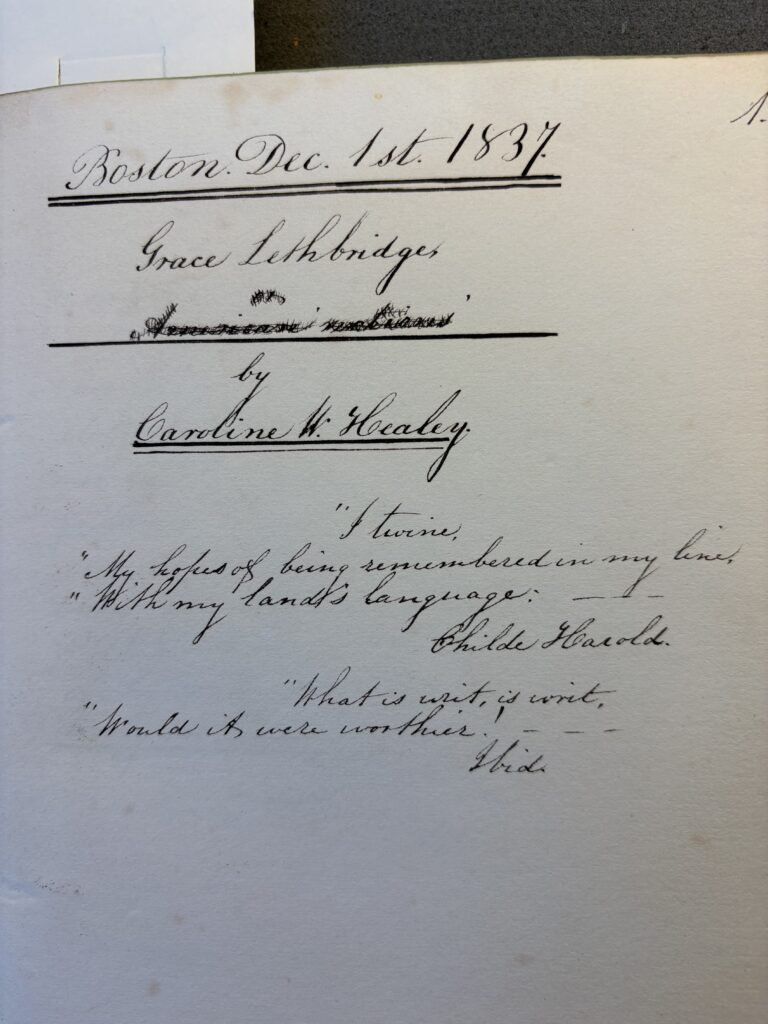 1.
Boston. Dec. 1st. 1837.
Grace Lethbridge,
by
Caroline W. Healey.
"I twine,
"My hopes of being remembered in my line,
"With my land's language: — — —
Childe Harold.
"What is writ, is writ,
"Would it were worthier! — — —
Ibid.